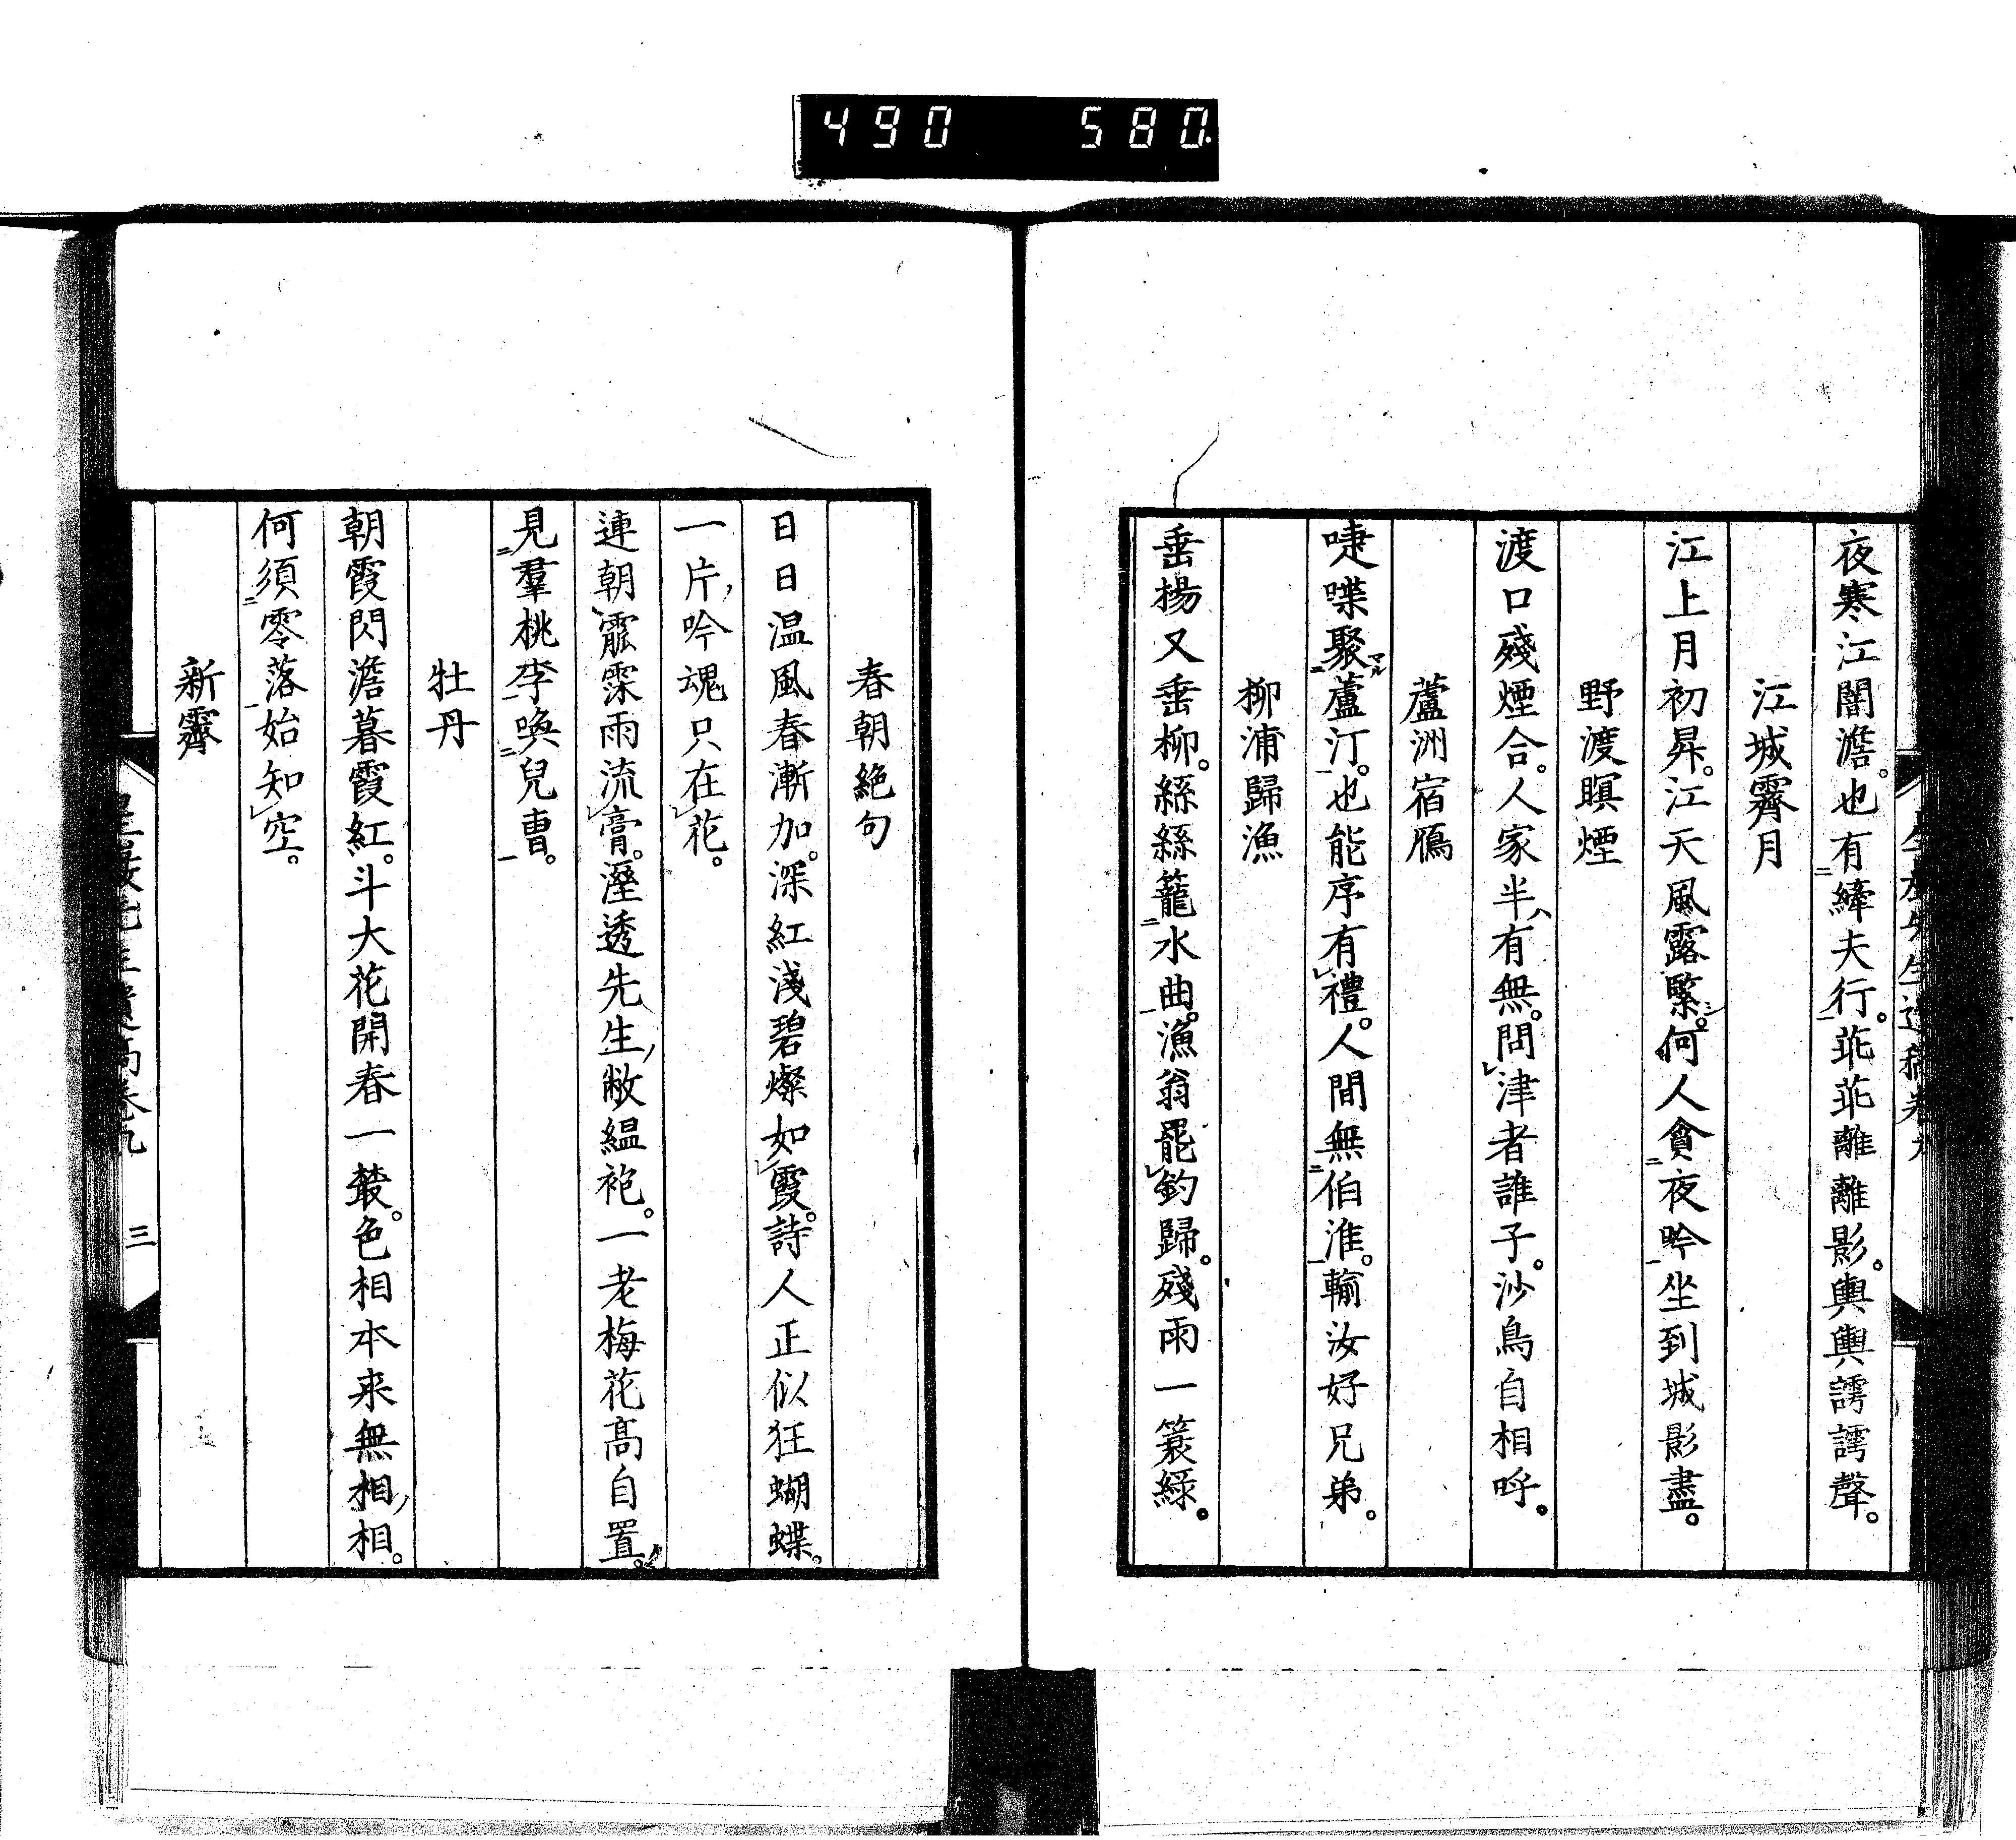 490 580
夜寒江闇澹。也有縴夫行。乖乖離離影。輿輿謣謣聲。
江城霽月
江上月初昇。江天風露緊。何人貪夜吟坐到城影盡。
野渡暝煙
渡口殘煙合。人家半有無。問津者誰子。沙鳥自相呼。
蘆洲宿鴈
啑喋聚蘆汀。也能序有禮。人間無伯淮。輸汝好兄弟。
柳浦歸漁
垂楊又垂柳。絲絲籠水曲。漁翁罷釣歸。殘雨一簑綠。
春朝絕句
日日温風春漸加。深紅淺碧燦如霞。詩人正似狂蝴蝶。
一片吟魂只在花。
連朝霢霂雨流膏。溼透先生敝縕袍。一老梅花髙自置。
見羣桃李喚兒曹。
牡丹
朝霞閃澹暮霞紅。斗大花開春一叢。色相本来無相相。
何須零落始知空。
新霽
三